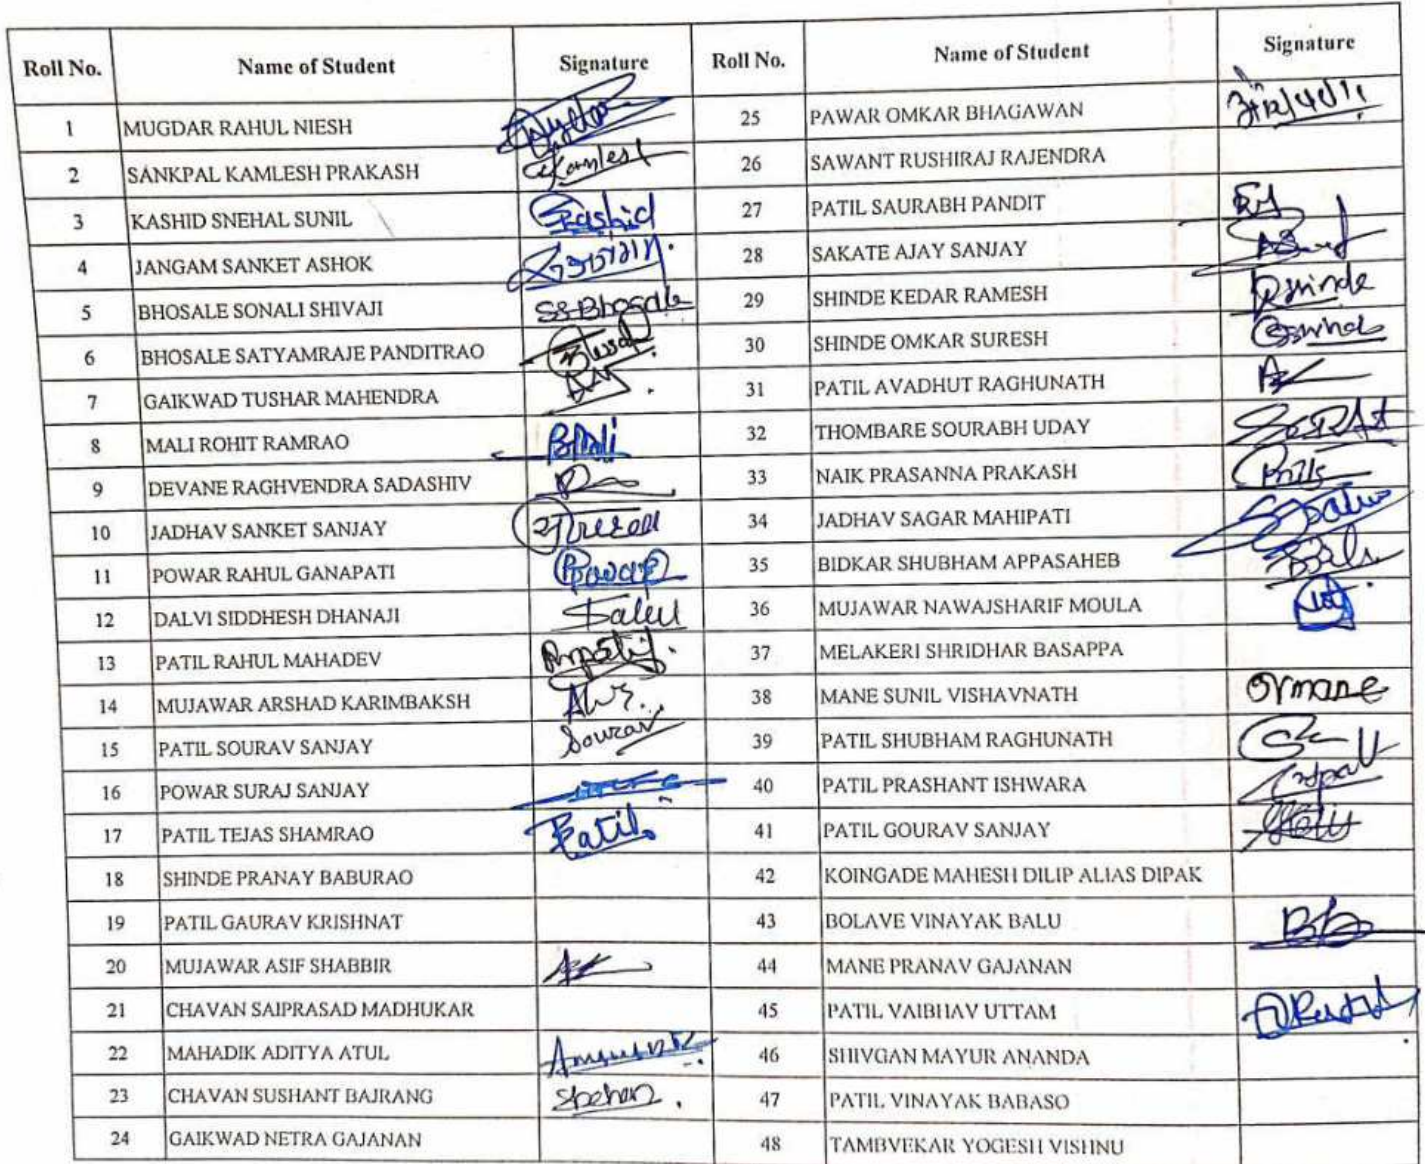 Roll No. Name of Student Signature Roll No. Name of Student Signature
1 MUGDAR RAHUL NIESH 25 PAWAR OMKAR BHAGAWAN
2 SANKPAL KAMLESH PRAKASH Kamlesh 26 SAWANT RUSHIRAJ RAJENDRA
3 KASHID SNEHAL SUNIL Kashid 27 PATIL SAURABH PANDIT
4 JANGAM SANKET ASHOK 28 SAKATE AJAY SANJAY
5 BHOSALE SONALI SHIVAJI SSBhosale 29 SHINDE KEDAR RAMESH Shinde
6 BHOSALE SATYAMRAJE PANDITRAO 30 SHINDE OMKAR SURESH
7 GAIKWAD TUSHAR MAHENDRA 31 PATIL AVADHUT RAGHUNATH
8 MALI ROHIT RAMRAO 32 THOMBARE SOURABH UDAY
9 DEVANE RAGHVENDRA SADASHIV 33 NAIK PRASANNA PRAKASH
10 JADHAV SANKET SANJAY 34 JADHAV SAGAR MAHIPATI
11 POWAR RAHUL GANAPATI 35 BIDKAR SHUBHAM APPASAHEB
12 DALVI SIDDHESH DHANAJI 36 MUJAWAR NAWAJSHARIF MOULA
13 PATIL RAHUL MAHADEV 37 MELAKERI SHRIDHAR BASAPPA
14 MUJAWAR ARSHAD KARIMBAKSH 38 MANE SUNIL VISHAVNATH SVmane
15 PATIL SOURAV SANJAY Sourav 39 PATIL SHUBHAM RAGHUNATH
16 POWAR SURAJ SANJAY 40 PATIL PRASHANT ISHWARA
17 PATIL TEJAS SHAMRAO Patil 41 PATIL GOURAV SANJAY
18 SHINDE PRANAY BABURAO 42 KOINGADE MAHESH DILIP ALIAS DIPAK
19 PATIL GAURAV KRISHNAT 43 BOLAVE VINAYAK BALU
20 MUJAWAR ASIF SHABBIR 44 MANE PRANAV GAJANAN
21 CHAVAN SAIPRASAD MADHUKAR 45 PATIL VAIBHAV UTTAM
22 MAHADIK ADITYA ATUL 46 SHIVGAN MAYUR ANANDA
23 CHAVAN SUSHANT BAJRANG 47 PATIL VINAYAK BABASO
24 GAIKWAD NETRA GAJANAN 48 TAMBVEKAR YOGESH VISHNU